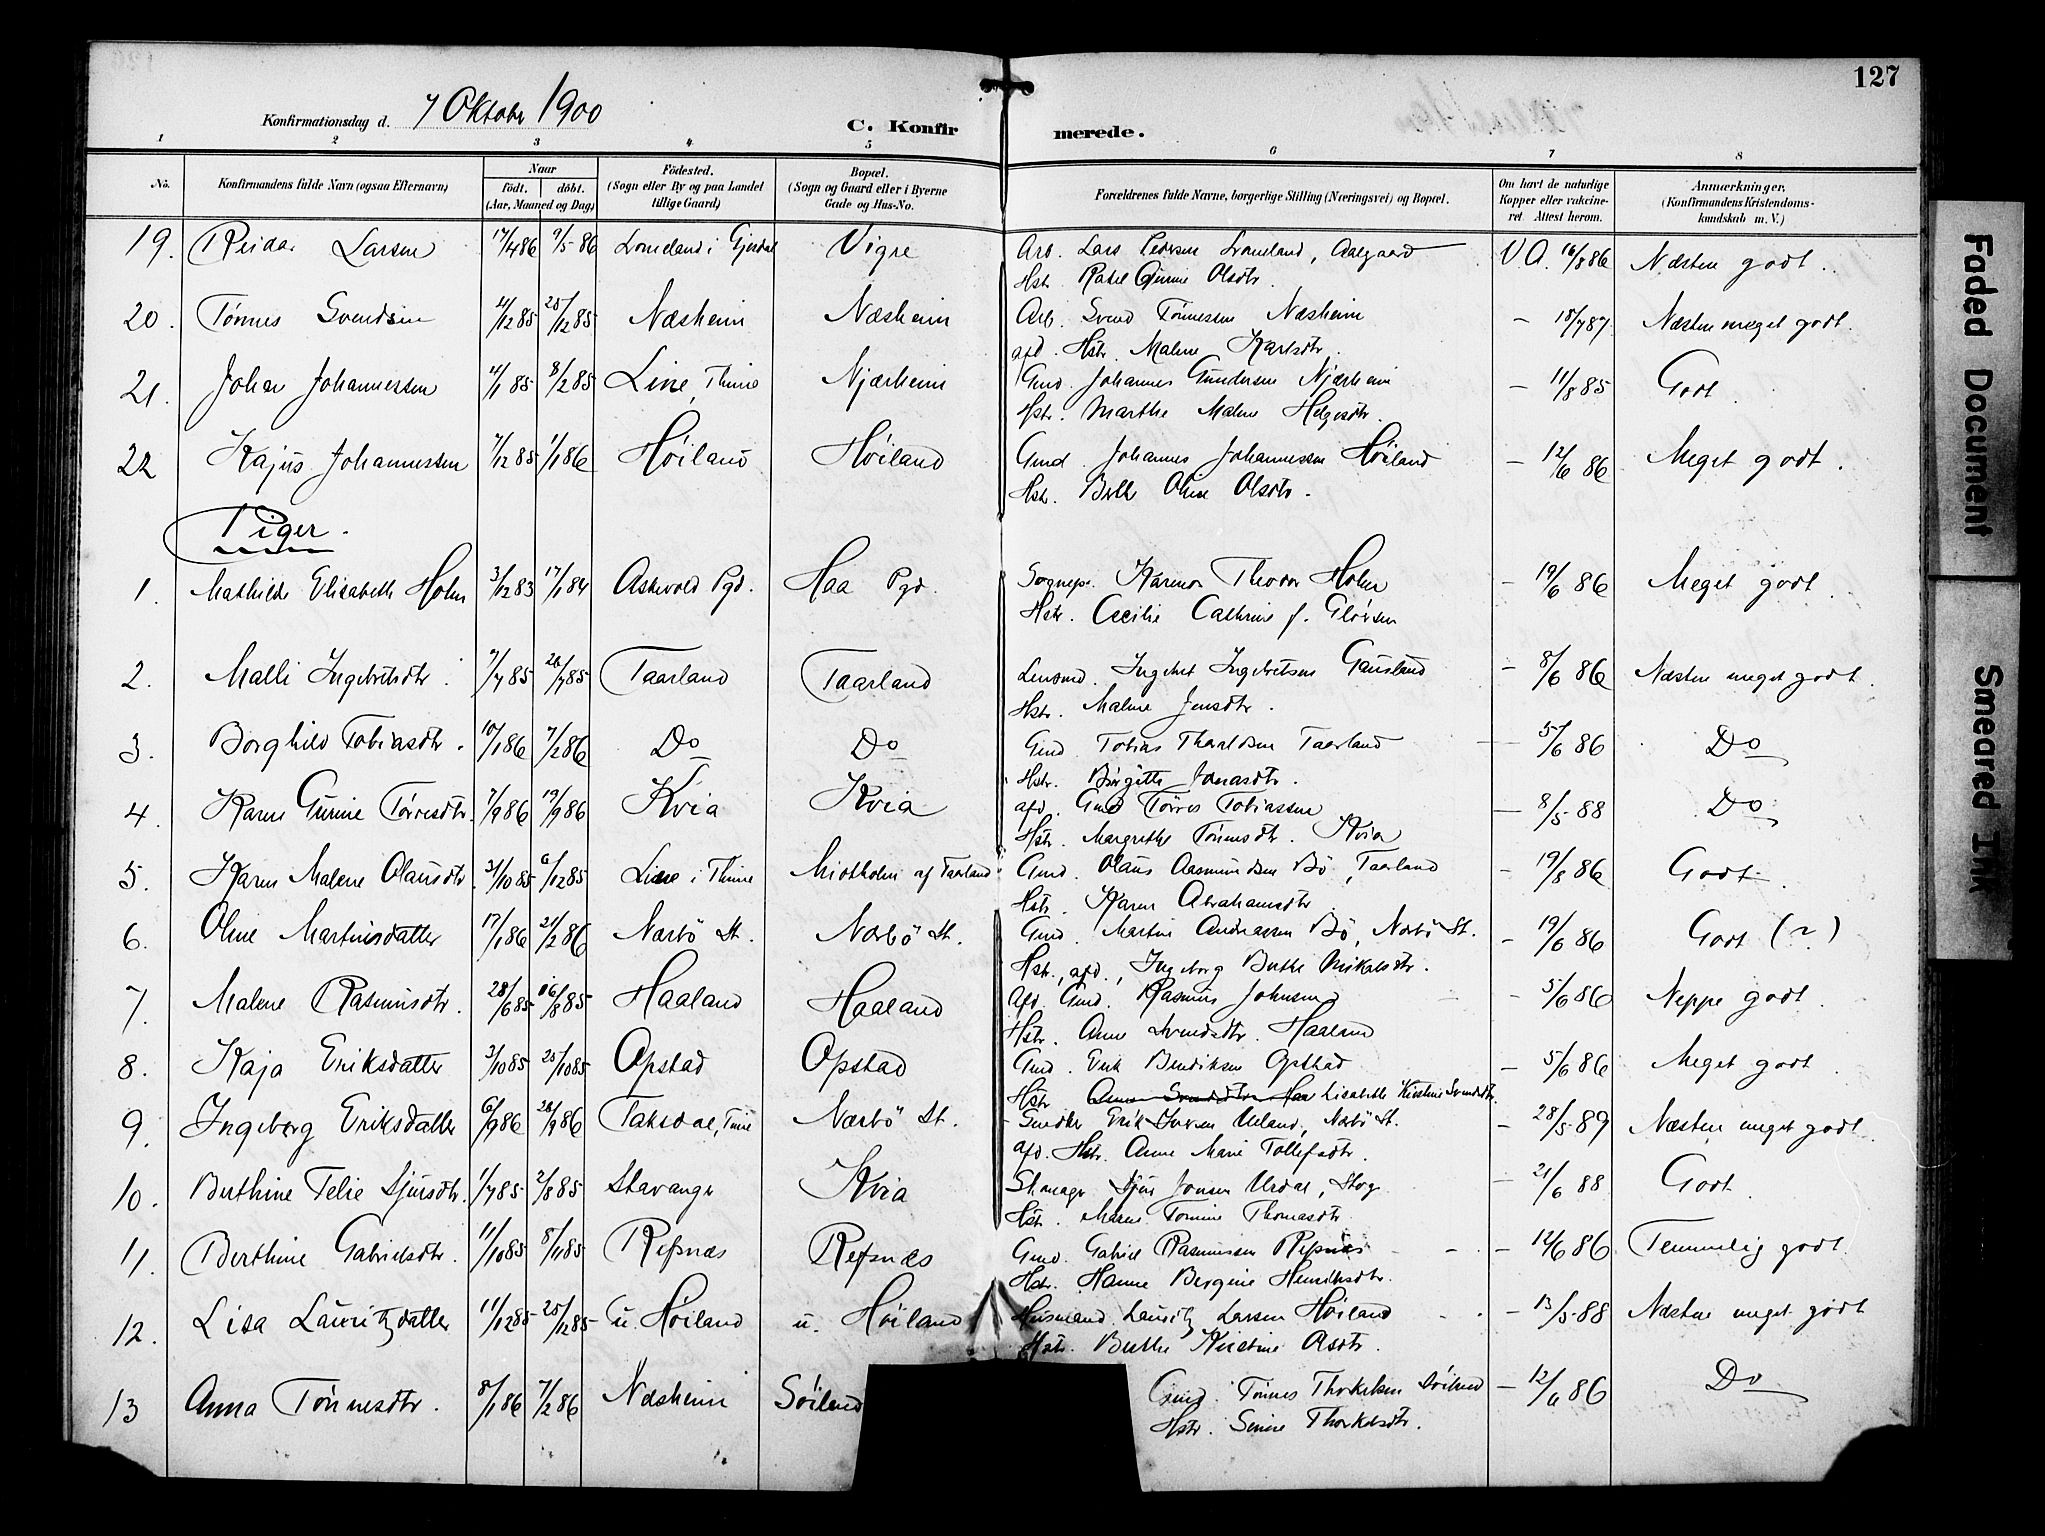 127
Konfirmationsdag d. 7 Oktobr 1900
C. Konfirmerede.
1 2 3 4 5 6 7 8
No. Konfirmandens fulde Navn (ogsaa Efternavn) Naar födt. döbt. (Aar, Maaned og Dag) Födested. (Sogn eller By og paa Landet tillige Gaard) Bopæl. (Sogn og Gaard eller i Byerne Gade og Hus-No. Forældrenes fulde Navne, borgerlige Stilling (Næringsvei) og Bopæl. Om havt de naturlige Kopper eller vakcineret. Attest herom. Anmærkninger. (Konfirmandens Kristendomskundskab m. V.)
19. Reidar Larsen 17/4 86 9/5 86 i Gjesdal Vigre Arb. Lars Pedersen Aalgaard V A. 16/8 86 Næsten godt.
Hst. Rakel Gunine Olsdtr.
20. Tönnes Svendsen 4/12 85 25/12 85 Næsheim Næsheim Arb. Svend Tönnessen Næsheim — 18/7 87 Næsten meget godt.
afd. Hstr. Malene Karlsdtr.
21. Johan Johannessen 4/1 85 8/2 85 Line, Thime Njærheim Gmd. Johannes Gundersen Njærheim — 11/8 85 Godt
Hstr. Marthe Malene Helgesdtr.
22 Kajus Johannessen 7/12 85 1/1 86 Höiland Höiland Gmd. Johannes Johannessen Höiland — 12/6 86 Meget godt.
Hst. Berthe Oline Olsdtr.
Piger.
1. Mathilde Elisabeth Holm 3/12 83 17/1 84 Askevold Pgd. Haa Pgd. Sognepr. Theodor Holm — 19/6 86 Meget godt
Hstr. Cecilie Cathrine f. Glörsen
2. Malli Ingebretsdtr. 7/7 85 26/7 85 Taarland Taarland Lensmd. Ingebret Ingebretsen Gausland — 8/6 86 Næsten meget godt.
Hstr. Malene Jensdtr.
3. Borghild Tobiasdtr. 10/1 86 7/2 86 Do Do Gmd. Tobias Theraldsen Taarland — 5/6 86 Do
Hstr. Birgitte Jonasdtr.
4. Karen Gurine Törresdtr. 7/9 86 19/9 86 Kvia Kvia afd. Gmd Törres Tobiassen — 8/5 88 Do
Hstr. Margrethe Tönnesdtr. Kvia
5. Karen Malene Olausdtr. 31/10 85 6/12 85 Line i Thime Motholm af Taarland Gmd. Olaus Aasmundsen Bö, Taarland — 19/8 86 Godt.
Hstr. Karen Abrahamsdtr.
6. Oline Martinsdatter 17/1 86 21/2 86 Nærbö St. Nærbö St. Gmd. Martin Andreassen Bö, Nærbö St. — 19/6 86 Godt (?)
Hstr., afd., Ingeborg Berthe Mikalsdtr.
7. Malene Rasmusdtr. 28/6 85 16/8 85 Haaland Haaland afd. Gmd. Rasmus Johnsen — 5/6 86 Neppe godt.
Hstr. Anne Svendsdtr. Haaland
8. Kaja Eriksdatter 3/10 85 25/10 85 Opstad Opstad Gmd. Erik Bendiksen Opstad — 5/6 86 Meget godt
Hstr. Anne Svendsdtr. Haa Lisabeth Kirstine Svendsdtr.
9. Ingeborg Eriksdatter 6/9 86 26/9 86 Taksdal, Time Nærbö St. Snedker Erik Iversen Ueland, Nærbö St. — 28/5 89 Næsten meget godt.
afd. Hstr. Anne Marie Tollefsdtr.
10. Berthine Telie Sjursdtr. 1/7 85 2/8 85 Stavanger Kvia Skomager Sjur Jonsen Urdal, Stvgr — 21/6 88 Godt.
Hstr. Maren Tomine Thomasdtr.
11. Berthine Gabrielsdtr. 11/10 85 8/11 85 Refsnæs Refsnæs Gmd. Gabriel Rasmussen Refsnæs — 12/6 86 Temmelig godt
Hstr. Hanne Bergine Henriksdtr.
12. Lisa Lauritzdatter 11/12 85 25/12 85 u. Höiland u. Höiland Husmand Lauritz Larsen Höiland — 13/5 88 Næsten meget godt
Hstr. Berthe Kirstine Olsdtr.
13 Anna Tönnesdtr. 8/1 86 7/2 86 Næsheim Söiland Gmd. Tönnes Thorkelsen Söiland — 12/6 86 Do
Hstr. Serine Thorkelsdtr.
Faded Document
Smeared Ink